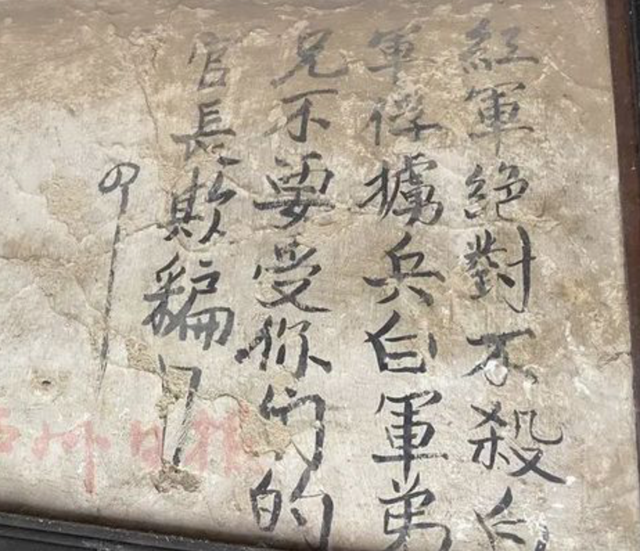 紅軍絕對不殺白
軍俘擄兵白軍弟
兄不要受你们的
官長欺騙了
州日报